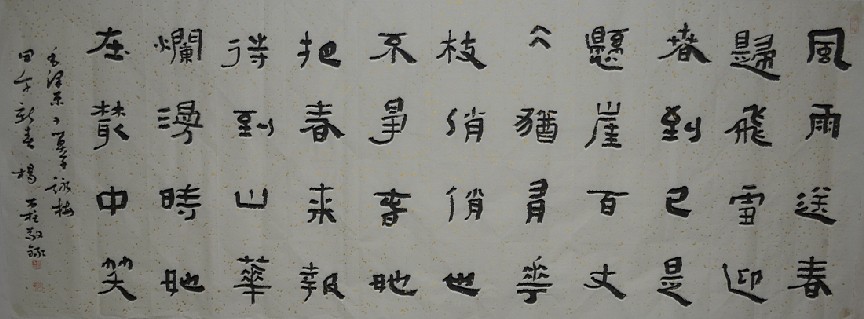 風雨送春
歸飛雪迎
春到已是
懸崖百丈
仌猶有華
枝俏俏也
不爭春只
把春來報
待到山華
爛漫時她
在叢中笑
毛澤東卜算子詠梅
甲午新春楊敬錄